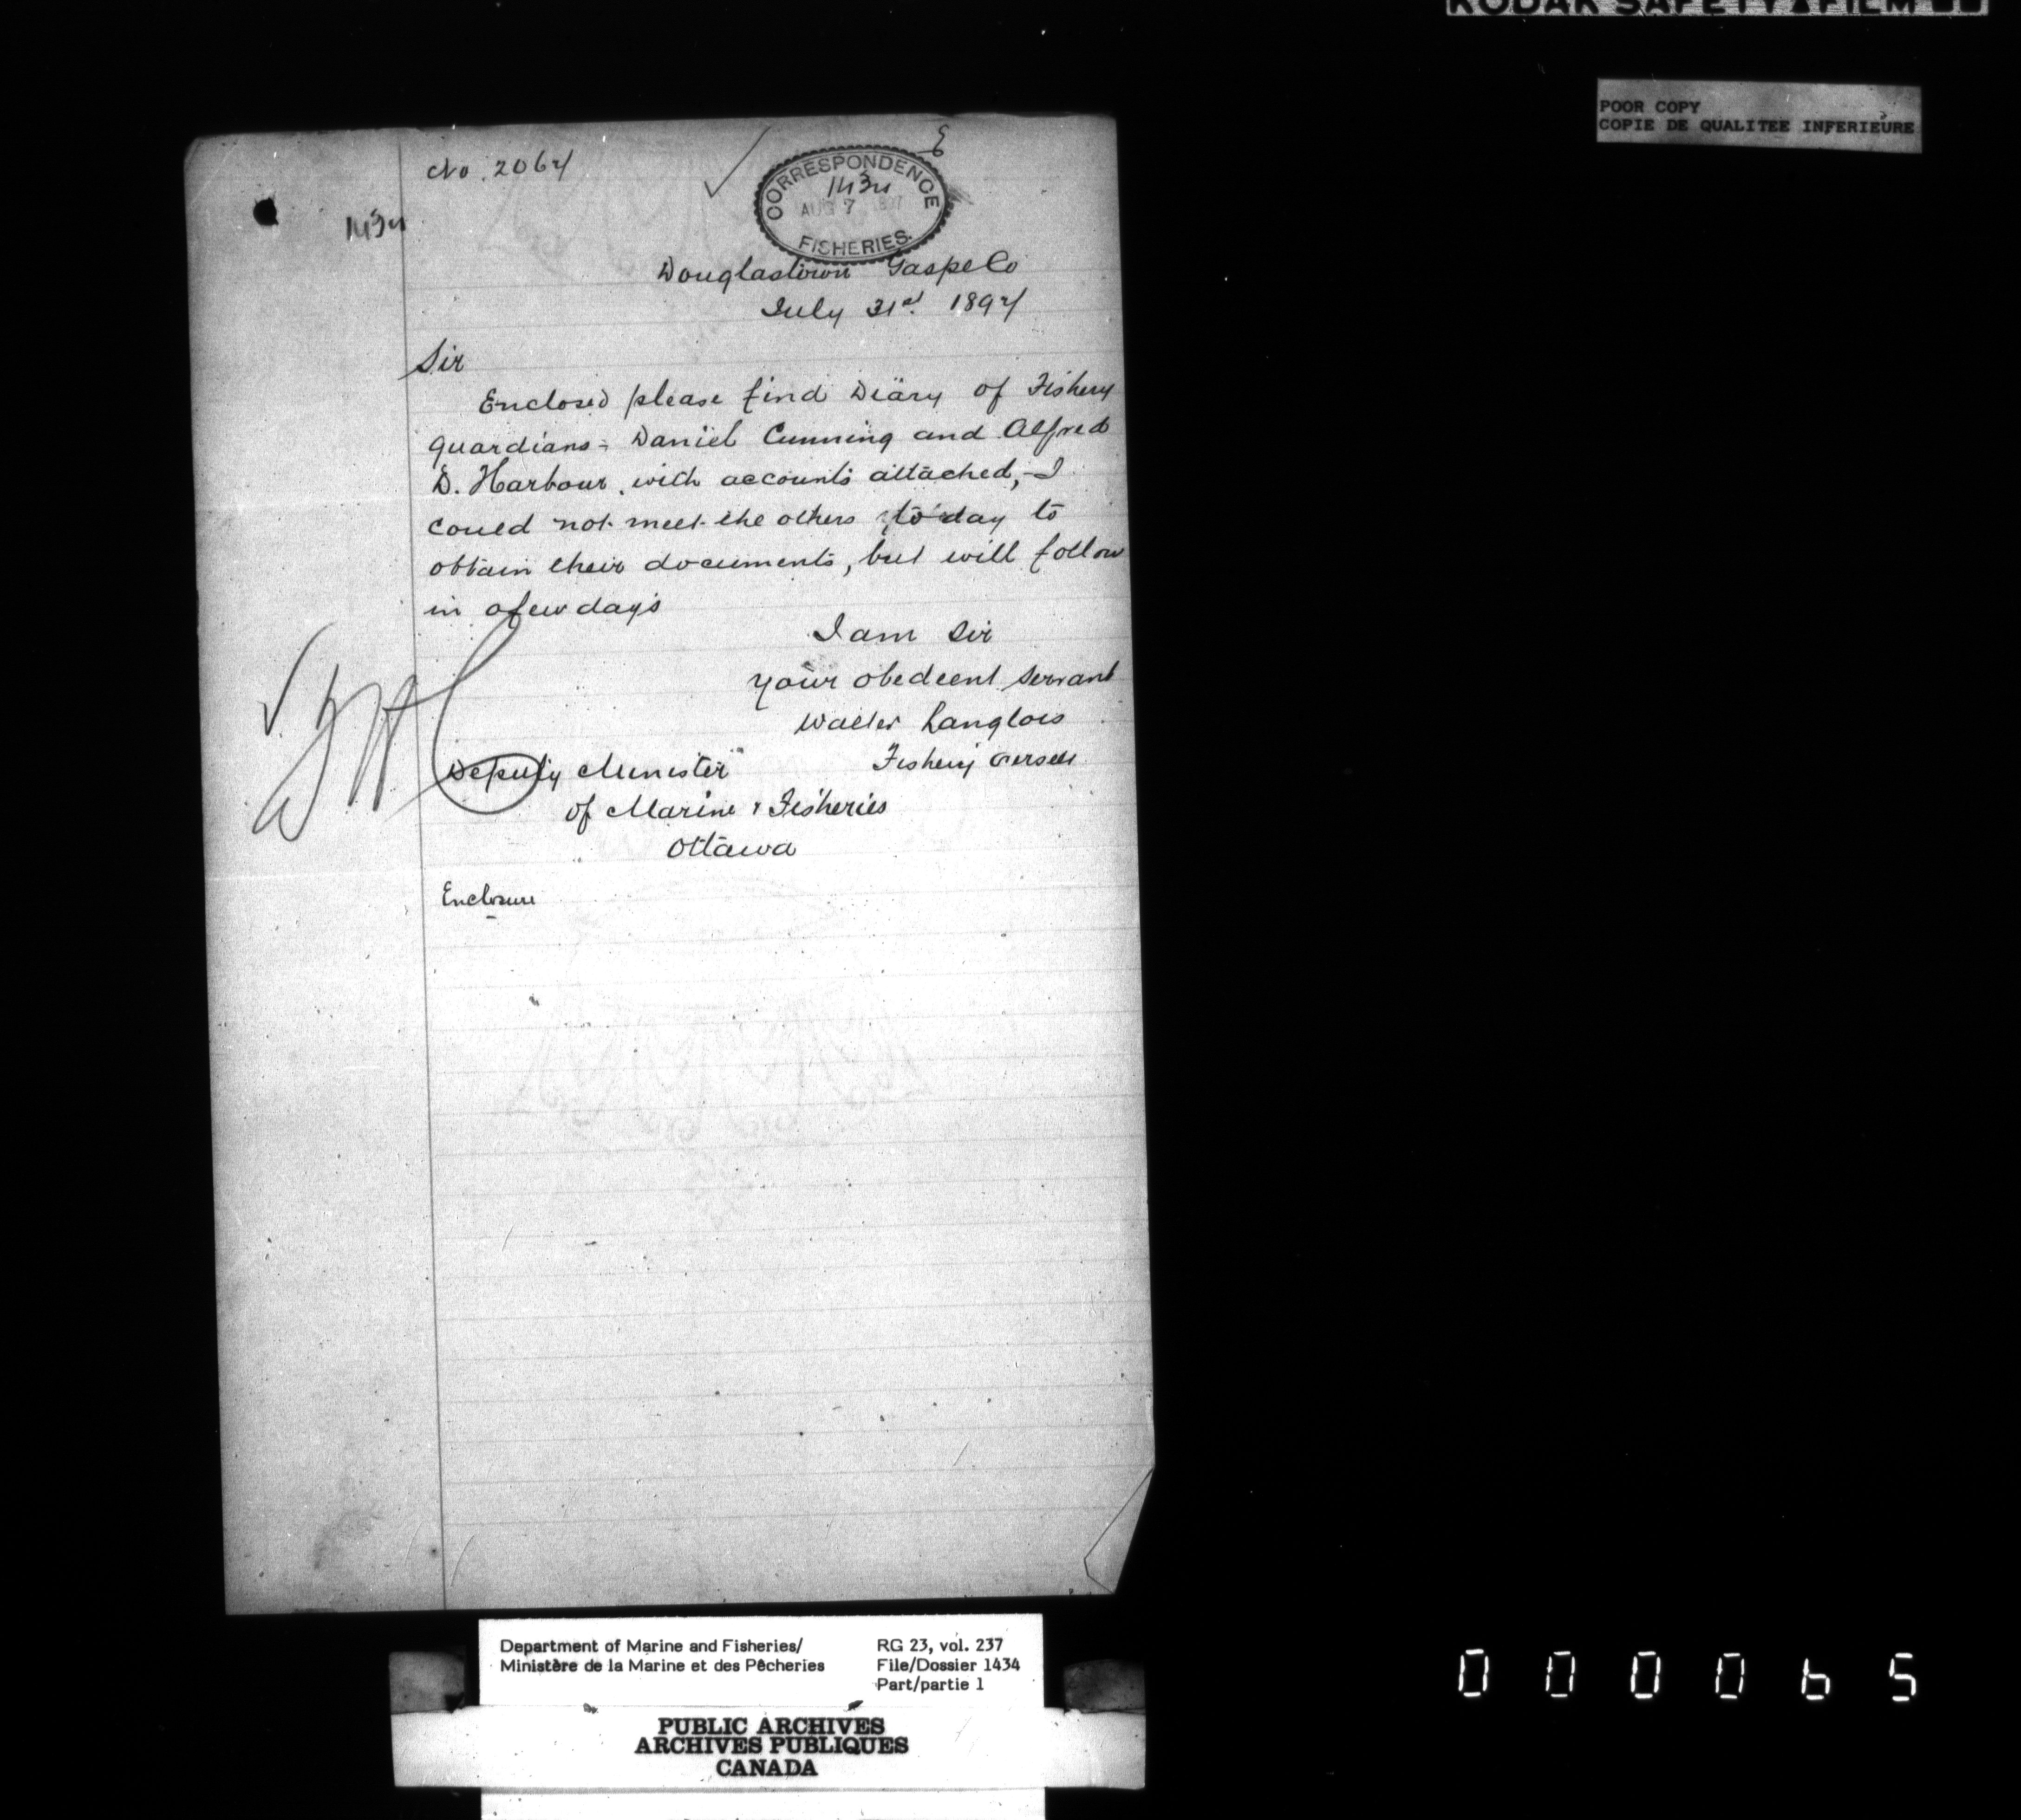 KODAK SAFETY FILM
POOR COPY
COPIE DE QUALITEE INFERIEURE
No. 2067
1434
CORRESPONDENCE
1434
AUG 7 1897
FISHERIES.
Douglastown Gaspe Co
July 31st 1897
Sir
Enclosed please find Diary of Fishery
guardians - Daniel Cunning and Alfred
D. Harbour. with accounts attached, - I
could not meet the others to day to
obtain their documents, but will follow
in a few days
I am Sir
your obedient servant
Walter Langlois
Fishery Overseer
Deputy Minister
of Marine & Fisheries
Ottawa
Enclosure
Department of Marine and Fisheries/
Ministère de la Marine et des Pêcheries
RG 23, vol. 237
File/Dossier 1434
Part/partie 1
PUBLIC ARCHIVES
ARCHIVES PUBLIQUES
CANADA
000065